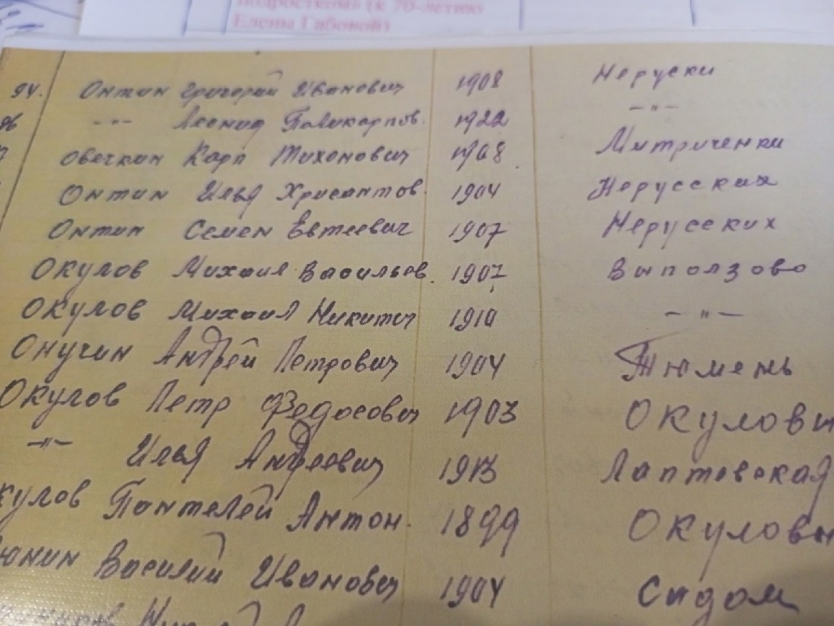 подростков» (к 70-летию
Елены Габовой)
94. Онтин Григорий Иванович 1908 Неруски
96 -"- Леонид Поликарпов. 1922 -"-
Овечкин Карп Тихонович 1908 Митриченки
Онтин Илья Хрисантов. 1904 Нерусских
Онтин Семен Евтеевич 1907 Нерусских
Окулов Михаил Васильев. 1907 Выползово
Окулов Михаил Никитич 1910 -"-
Онучин Андрей Петрович 1904 Тюмень
Окулов Петр Федосович 1903 Окуловы
-"- Илья Андреевич 1913 Лаптевская
кулов Пантелей Антон. 1899 Окуловы
юнин Василий Иванович 1904 Сидом